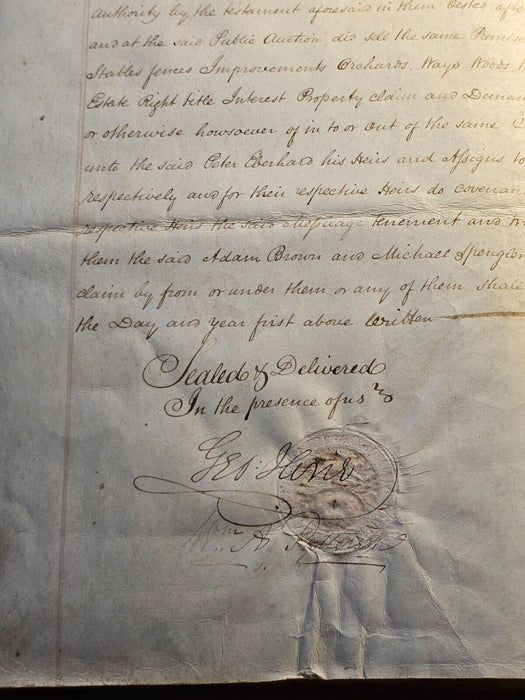 authority by the testament aforesaid in them vested afte
and at the said Public Auction did sell the same Premise
Stables fences Improvements Orchards, Ways Woods W
Estate Right title Interest Property claim and Deman
or otherwise howsoever of in to or out of the same
unto the said Peter Eberhard his Heirs and Assigns to
respectively and for their respective Heirs do covenan
respective Heirs the said Messuage tenement and tr
them the said Adam Brown and Michael Spengler
claim by from or under them or any of them shall
the Day and year first above written
Sealed & Delivered
In the presence of us
Geo:
Wm